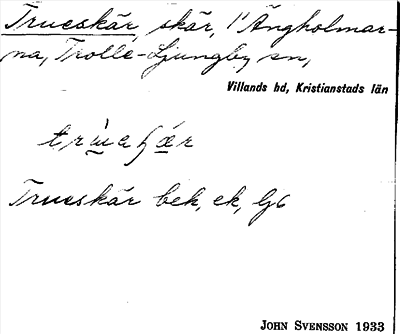 Trueskär, skär, i Ängholmar-
na, Trolle-Ljungby sn,
Villands hd, Kristianstads län
Trueskär bek, ek,
JOHN SVENSSON 1933